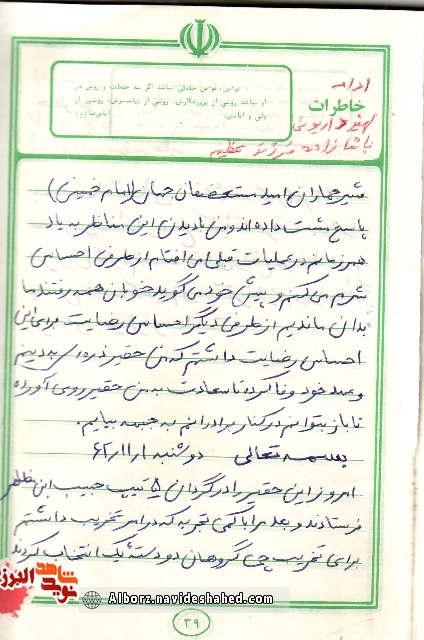 مؤمن، مؤمن حقیقی نباشد اگر سه خصلت و روش در
او نباشد روشی از پروردگارش، روشی از پیامبرش، روشی از
ولی و امامش. امام رضا (ع)
ادامه
خاطرات
شهید داریوش
پاشازاده
جماران امید مستضعفان جهان (امام خمینی)
پاسخ مثبت داده اند و من با دیدن این مناظر به یاد
همرزمانم در عملیات قبلی می افتم از طرفی احساس
شرم می کنم و پیش خود می گوید خوبان همه رفتند ما
بدان ماندیم از طرفی دیگر احساس رضایت برای این
احساس رضایت داشتم که من حقیر ذره ای به دینم
و عهد خود وفا کرده تا سعادت به من حقیر روی آورده
تا باز بتوانم در کنار برادرانم به جبهه بیایم.
بسمه تعالی دوشنبه ۶۲/۱۱/۱
امروز این حقیر را در گردان ۵ تیپ حبیب ابن مظاهر
فرستادند و بعد مرا با کمی تجربه که در امر تخریب داشتم
برای تخریب چی گروهان دو دسته یک انتخاب کردند
۳۹
شاهد
نوید
البرز
Alborz.navideshahed.com